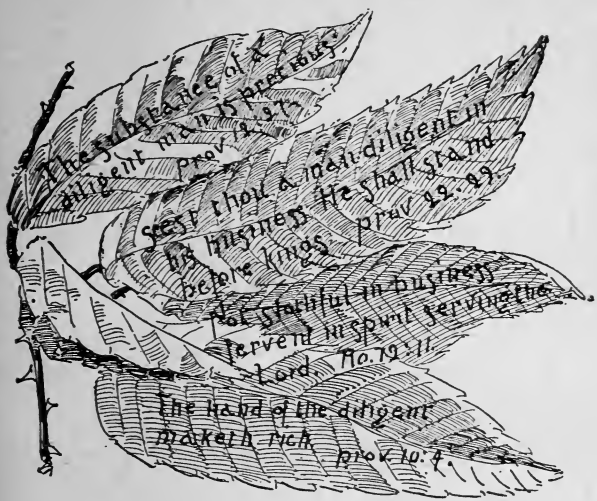 The substance of a
diligent man is precious.
prov. 12:27
seest thou a man diligent in
his business He shall stand
before kings prov 22:29.
Not slothful in business
fervent in spirit serving the
Lord. Ro. 12:11.
The hand of the diligent
maketh rich
prov. 10:4.